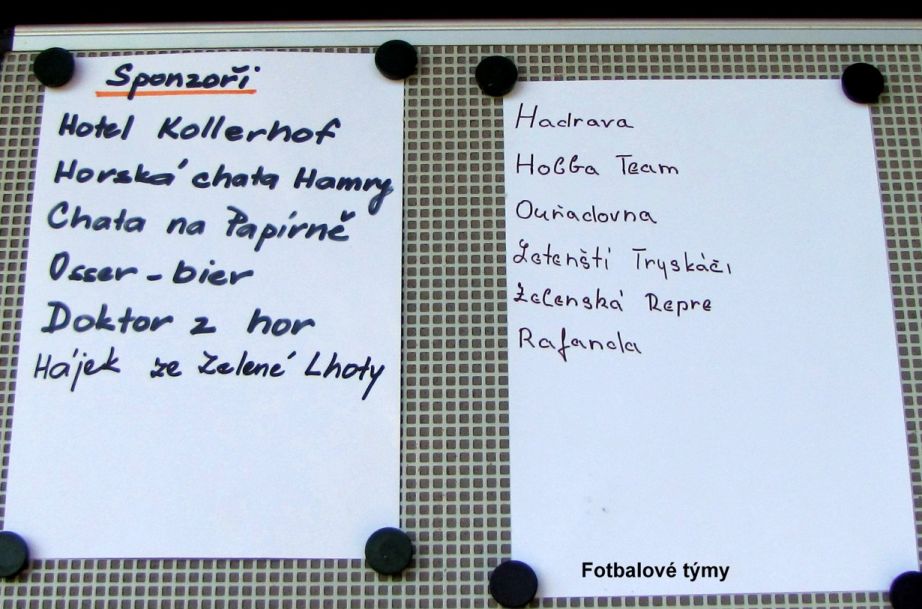 Sponzoři
Hotel Kollerhof
Horská chata Hamry
Chata na Papírně
Osser-bier
Doktor z hor
Hájek ze Zelené Lhoty
Hadrava
Hobba Team
Ouňadovna
Letenští Tryskáči
Zelenská Repre
Rafanda
Fotbalové týmy